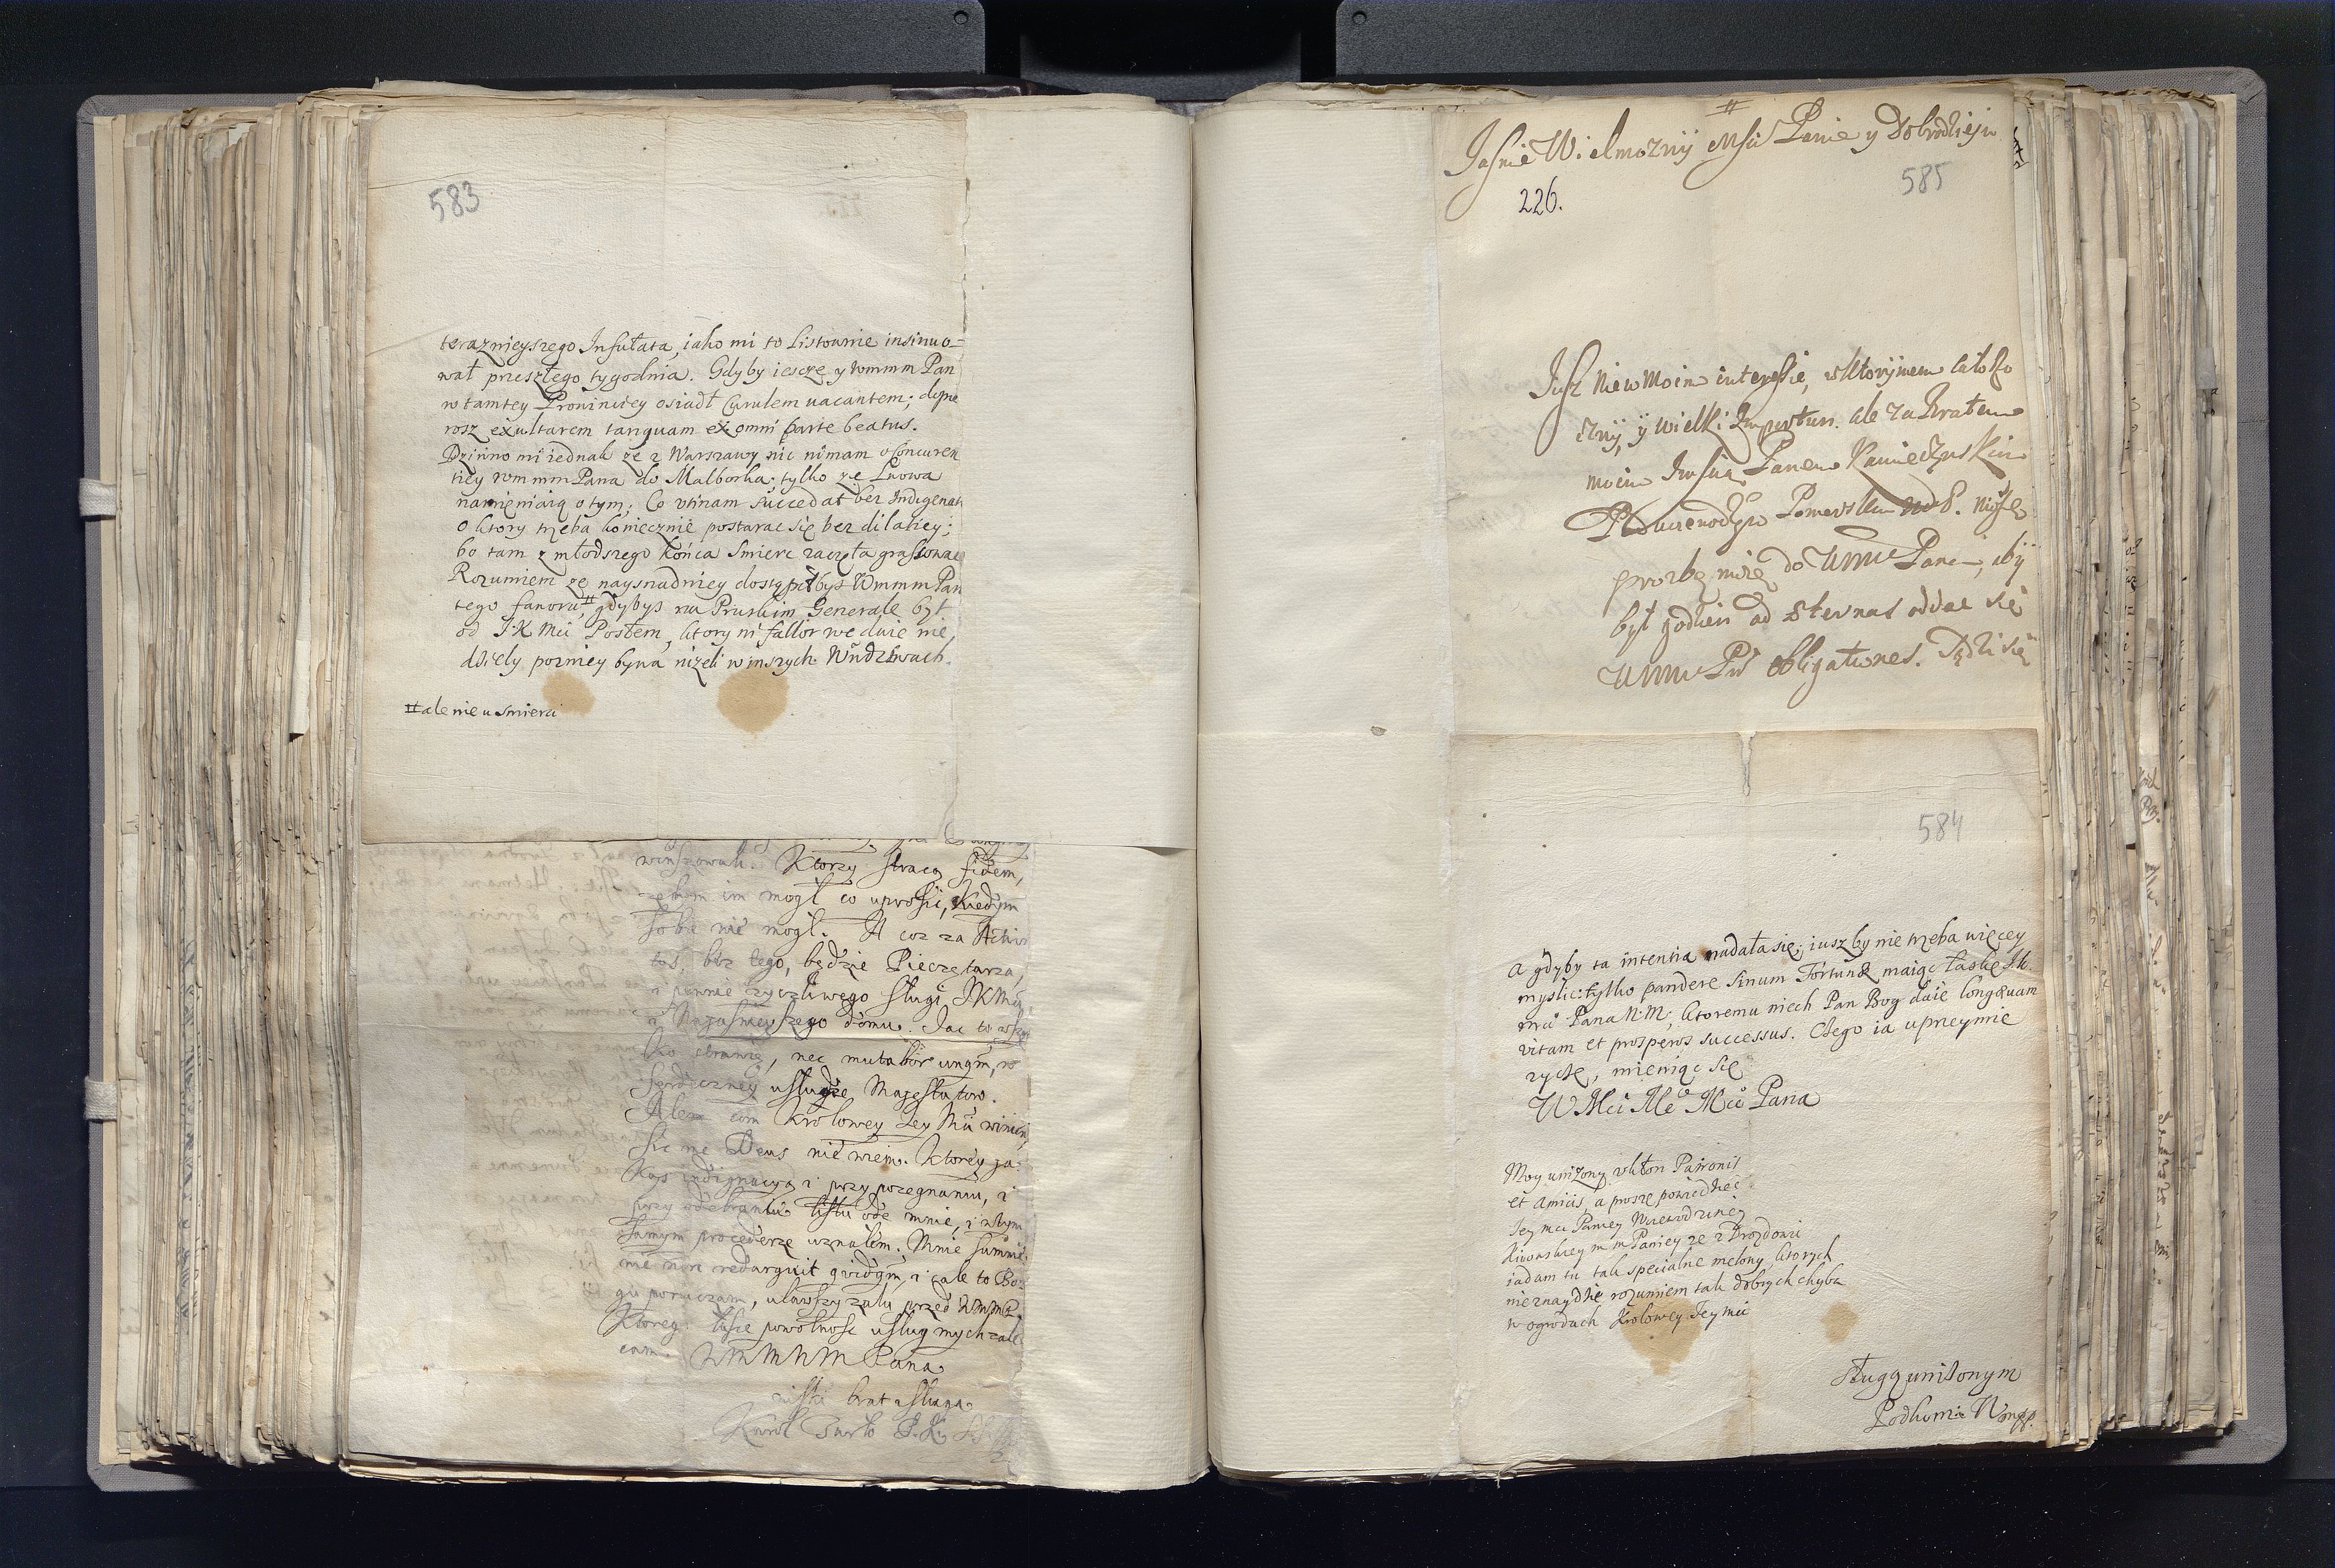 583
teraznieyszego Infułata, iako mi to Listownie insinuo=
wał przeszłego tygodnia. Gdyby iescze y wmmm Pan
w tamtey Prowincyey osiadł Curulem vacantem; depie
rosz exultarem tanquam ex omni parte beatus.
Dziwno mi iednak ze z Warszawy nic nimam o Concuren
tiey wmmm Pana do Malborka; tylko ze Lwowa
namieniaią o tym; Co vtinam succedat bez Indigenat
o ktory trzeba koniecznie postarac się bez dilatiey;
bo tam z młodszego końca Smierc zaczęła grassowac
Rozumiem ze naysnadniey dostąpiłbyś Wmmm Pan
tego fanoru, # gdybys na Pruskim Generale był
od J.K Mci Posłem, ktory ni fallor we dwie nie,
dziely pozniey bywa nizeli w inszych Wndztwach.
# ale nie u smierci
winszowali. Ktorzy stracą fidem,
zebym im mogł co uprosić, kiedym
sobie nie mogł. A coz za
tas, bez tego, będzie Pieczętarza,
i pewnie zyczliwego sługi JKMci
i Najasnieyszego domu. Jac to wszy
, nec mutabor unqm, w
serdeczney usłudze Majestatow.
Alem com Krolowey Jey Mci winien,
sic me Deus nie wiem. Ktorey ja:
kąs indignacyą i przy pozegnaniu, i
przy odebraniu listu ode mnie, i w tym
samym procederze uznałem. Mnie sumnie
nie non redarguit quidqm, i cale to Bo:
gu poruczam, ulawszy zalu przed WMMP.
Ktorego łasce powolnosc usług mych zale
cam. WMMMM Pana
brat i sługa
Karol Tarło P.K.
Jasnie Wielmozny Msci Panie y Dobrodzieju
226.
585
Jusz nie w Moim interessie, w ktorym
y wielki Importun. ale za Bratem
moim Imscią Panem Kamieczynskim
Pomorskim
prozbę mnię do WMM Pana, aby
był godzien ad æternas oddac się
WMM Pu obligationes.
584
A gdyby ta intentia nadała się; iusz by nie trzeba więcey
myslic: tylko pandere sinum Fortunæ maiąc łaskę Jk.
mci Pana N:M; ktoremu niech Pan Bog daie longæuam
vitam et prosperos successus. Czego ia uprzeymie
zyczę, mieniąc się
W Mci Me Mci Pana
Moy unizony vkłon Patronis
et Amicis, a proszę powiedziec
Jey mci Paniey Woiewodziney
Kiiowskiey m m Paniey ze z Drozdowi
iadam tu tak specialne melony, ktorych
nie znaydzie rozumiem tak dobrych chyba
w ogrodach Krolowey Jey mci
sługą unizonym